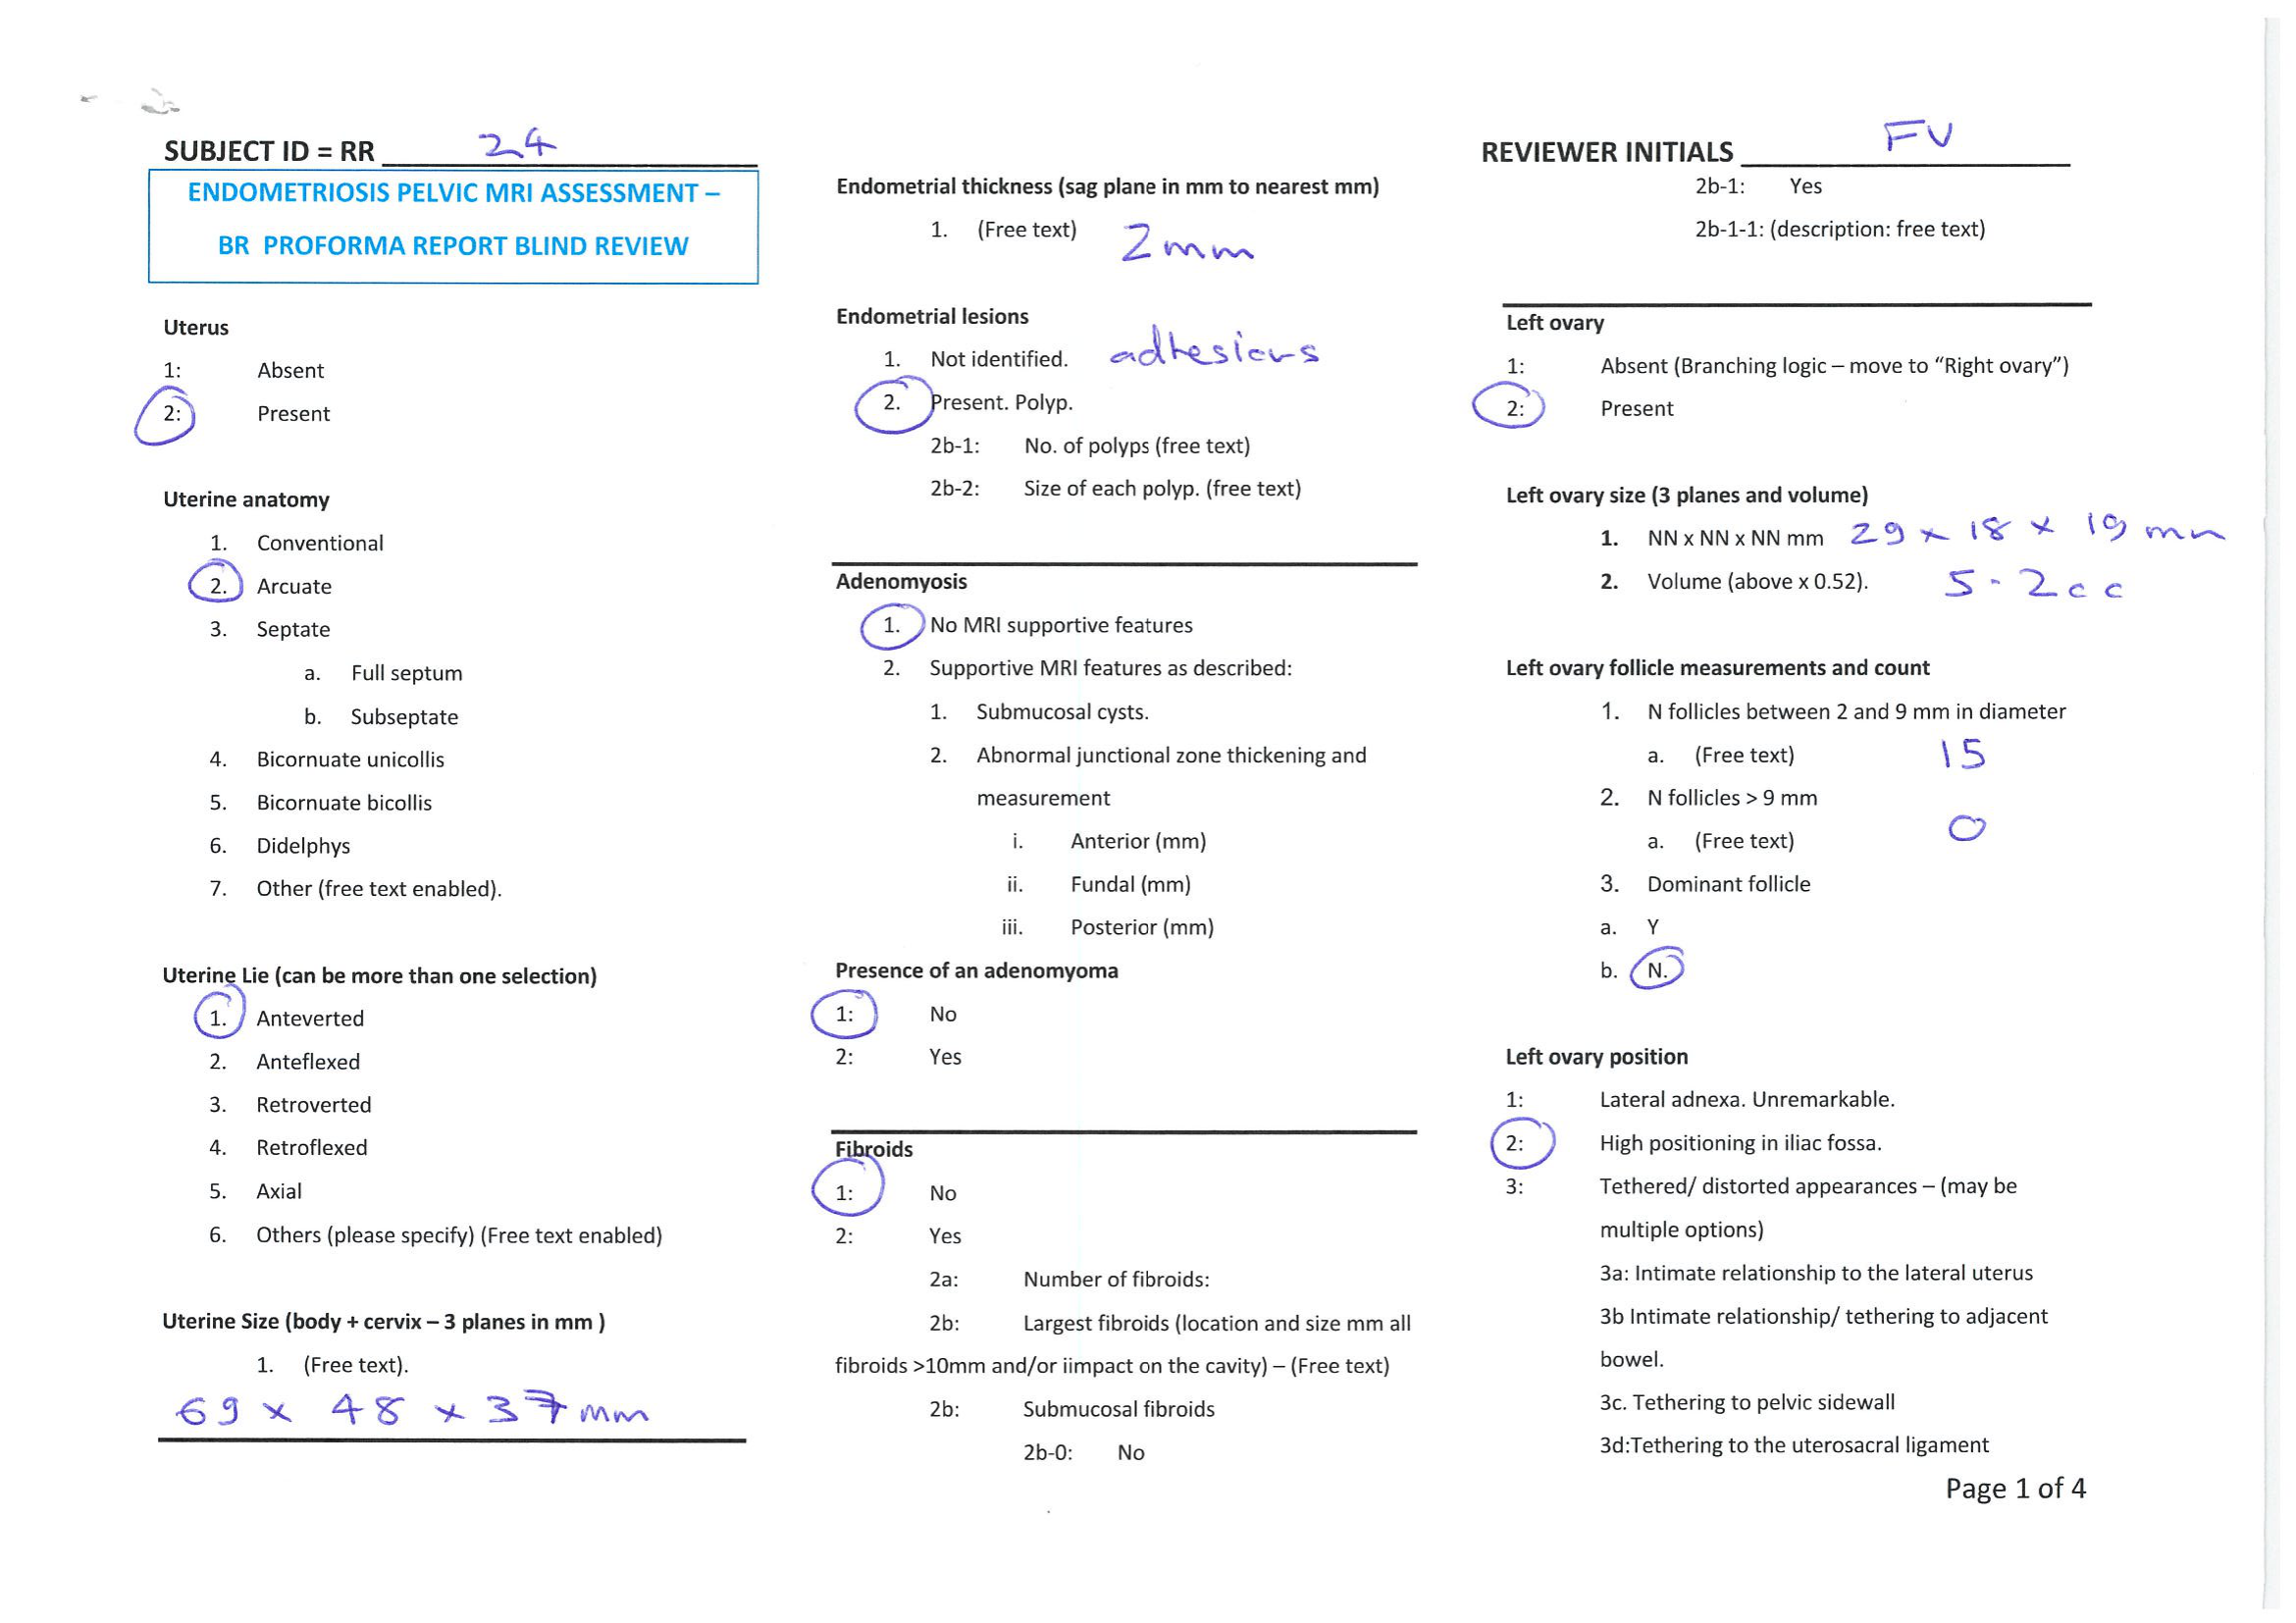 SUBJECT ID = RR 24
ENDOMETRIOSIS PELVIC MRI ASSESSMENT –
BR PROFORMA REPORT BLIND REVIEW
Uterus
1: Absent
2: Present
Uterine anatomy
1. Conventional
2. Arcuate
3. Septate
a. Full septum
b. Subseptate
4. Bicornuate unicollis
5. Bicornuate bicollis
6. Didelphys
7. Other (free text enabled).
Uterine Lie (can be more than one selection)
1. Anteverted
2. Anteflexed
3. Retroverted
4. Retroflexed
5. Axial
6. Others (please specify) (Free text enabled)
Uterine Size (body + cervix – 3 planes in mm )
1. (Free text).
69 x 48 x 37 mm
Endometrial thickness (sag plane in mm to nearest mm)
1. (Free text) 2mm
Endometrial lesions
1. Not identified. adhesions
2. Present. Polyp.
2b-1: No. of polyps (free text)
2b-2: Size of each polyp. (free text)
Adenomyosis
1. No MRI supportive features
2. Supportive MRI features as described:
1. Submucosal cysts.
2. Abnormal junctional zone thickening and
measurement
i. Anterior (mm)
ii. Fundal (mm)
iii. Posterior (mm)
Presence of an adenomyoma
1: No
2: Yes
Fibroids
1: No
2: Yes
2a: Number of fibroids:
2b: Largest fibroids (location and size mm all
fibroids >10mm and/or iimpact on the cavity) – (Free text)
2b: Submucosal fibroids
2b-0: No
REVIEWER INITIALS FV
2b-1: Yes
2b-1-1: (description: free text)
Left ovary
1: Absent (Branching logic – move to “Right ovary”)
2: Present
Left ovary size (3 planes and volume)
1. NN x NN x NN mm 29 x 18 x 19 mm
2. Volume (above x 0.52). 5.2cc
Left ovary follicle measurements and count
1. N follicles between 2 and 9 mm in diameter
a. (Free text) 15
2. N follicles > 9 mm
a. (Free text) 0
3. Dominant follicle
a. Y
b. N.
Left ovary position
1: Lateral adnexa. Unremarkable.
2: High positioning in iliac fossa.
3: Tethered/ distorted appearances – (may be
multiple options)
3a: Intimate relationship to the lateral uterus
3b Intimate relationship/ tethering to adjacent
bowel.
3c. Tethering to pelvic sidewall
3d:Tethering to the uterosacral ligament
Page 1 of 4